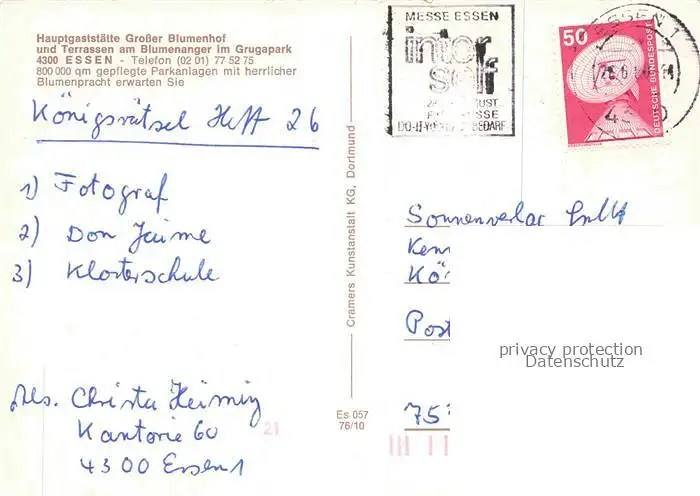 Hauptgaststätte Großer Blumenhof
und Terrassen am Blumenanger im Grugapark
4300 ESSEN - Telefon (02 01) 77 52 75
800 000 qm gepflegte Parkanlagen mit herrlicher
Blumenpracht erwarten Sie
Königsrätsel Heft 26
1) Fotograf
2) Don Jaime
3) Klosterschule
Abs. Christa Heiming
Kantorie 60
4300 Essen 1
Cramers Kunstanstalt KG, Dortmund
Es 057
76/10
21
MESSE ESSEN
inter
self
DO-IT-YOURSELF BEDARF
ESSEN 1
50
DEUTSCHE BUNDESPOST
Sonnenverlag GmbH
Kenn
Kö
Post
75
privacy protection
Datenschutz